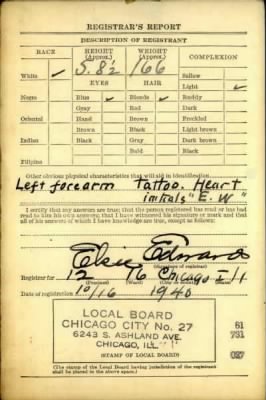 REGISTRAR'S REPORT
DESCRIPTION OF REGISTRANT
RACE HEIGHT (Approx.) WEIGHT (Approx.) COMPLEXION
White ✓ 5.8½ 166 Sallow
EYES HAIR Light ✓
Negro Blue ✓ Blonde ✓ Ruddy
Gray Red Dark
Oriental Hazel Brown Freckled
Brown Black Light brown
Indian Black Gray Dark brown
Bald Black
Filipino
Other obvious physical characteristics that will aid in identification
Left forearm Tattoo. Heart
initials "E. W"
I certify that my answers are true; that the person registered has read or has had
read to him his own answers; that I have witnessed his signature or mark and that
all of his answers of which I have knowledge are true, except as follows:
Elsie Edwards
(Signature of registrar)
Registrar for 12 16 Chicago Ill
(Precinct) (Ward) (City or county) (State)
Date of registration 10/16 1940
LOCAL BOARD
CHICAGO CITY No. 27 61
6243 S. ASHLAND AVE. 731
CHICAGO, ILL. 027
(STAMP OF LOCAL BOARD)
(The stamp of the Local Board having jurisdiction of the registrant
shall be placed in the above space.)